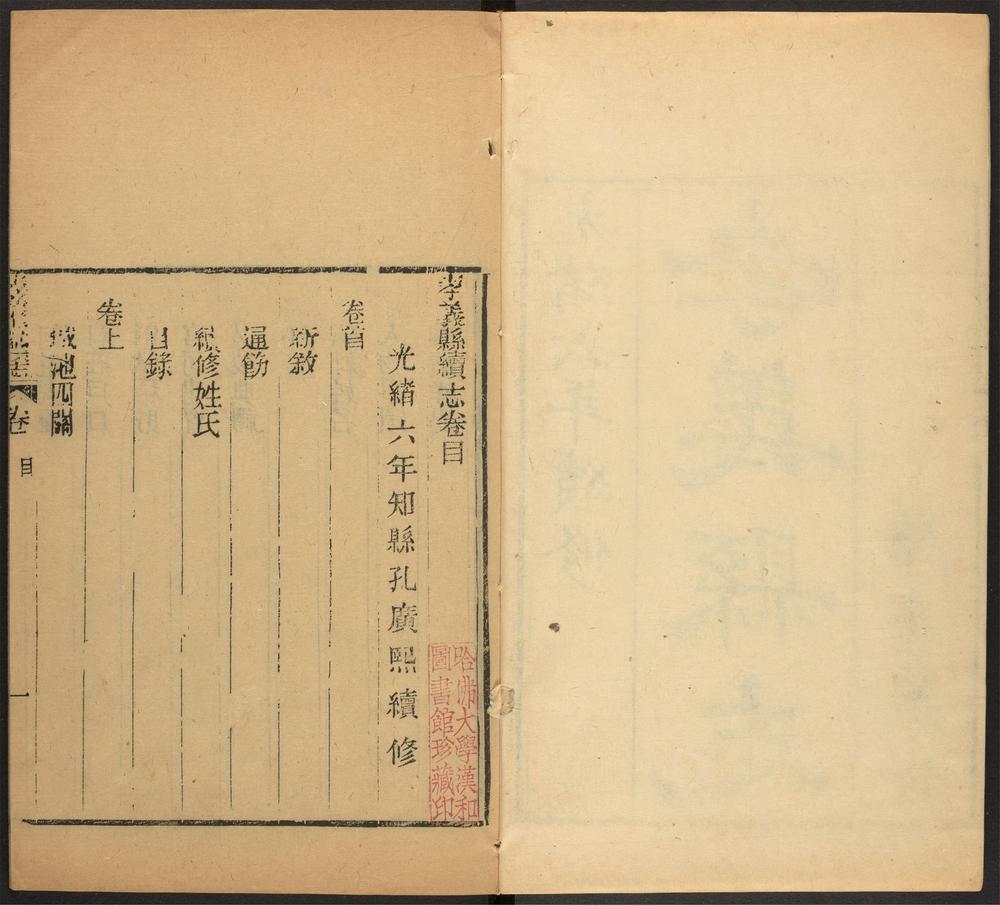 孝義縣續志卷目
光緒六年知縣孔廣熙續修
卷首
新敘
通飭
續修姓氏
目錄
卷上
城池四關
孝義縣續志 卷目 一
哈佛大學漢和
圖書館珍藏印